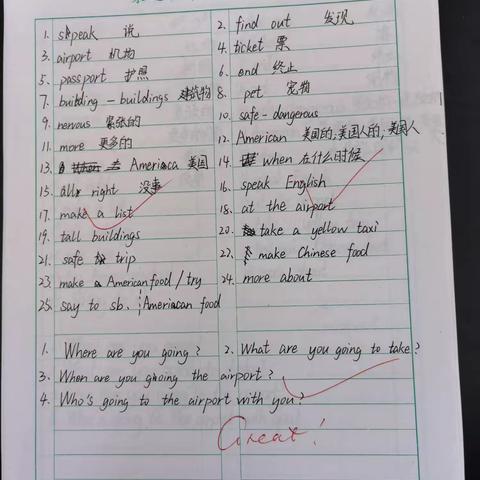 1. speak 说 2. find out 发现
3. airport 机场 4. ticket 票
5. passport 护照 6. end 终止
7. building - buildings 建筑物 8. pet 宠物
9. nervous 紧张的 10. safe - dangerous
11. more 更多的 12. American 美国的,美国人的,美国人
13. America 美国 14. when 在什么时候
15. all right 没事 16. speak English
17. make a list 18. at the airport
19. tall buildings 20. take a yellow taxi
21. safe trip 22. make Chinese food
23. make American food / try 24. more about
25. say to sb. American food
1. Where are you going? 2. What are you going to take?
3. When are you going the airport?
4. Who's going to the airport with you?
Great!